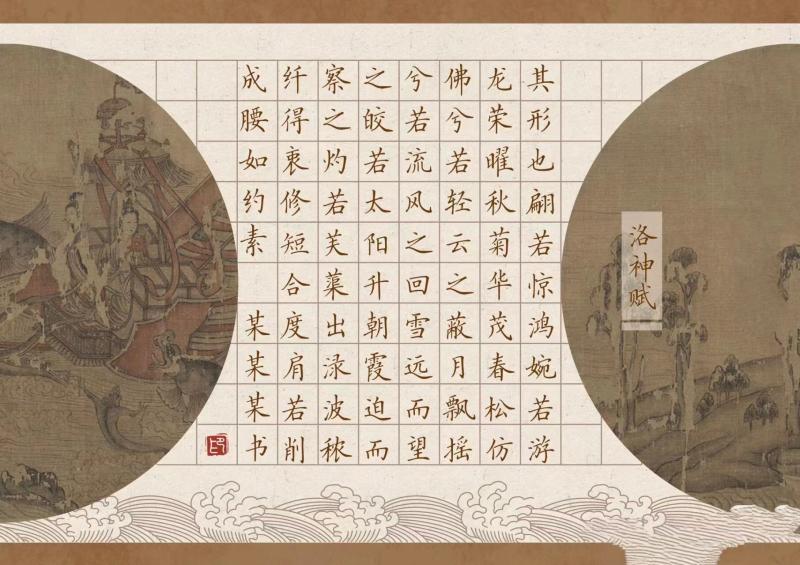 洛神赋
其形也翩若惊鸿婉若游
龙荣曜秋菊华茂春松仿
佛兮若轻云之蔽月飘摇
兮若流风之回雪远而望
之皎若太阳升朝霞迫而
察之灼若芙蕖出渌波秾
纤得衷修短合度肩若削
成腰如约素 某某某书
印